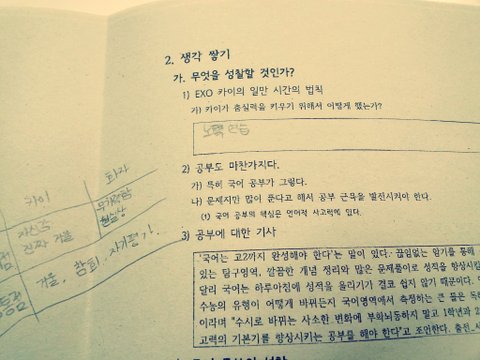 2. 생각 쌓기
가. 무엇을 성찰할 것인가?
1) EXO 카이의 일만 시간의 법칙
가) 카이가 춤실력을 키우기 위해서 어떻게 했는가?
노력 연습
2) 공부도 마찬가지다.
가) 특히 국어 공부가 그렇다.
나) 문제지만 많이 푼다고 해서 공부 근육을 발전시켜야 한다.
(1) 국어 공부의 핵심은 언어적 사고력에 있다.
3) 공부에 대한 기사
'국어는 고2까지 완성해야 한다'는 말이 있다. 끊임없는 암기를 통해
있는 탐구영역, 깔끔한 개념 정리와 많은 문제풀이로 성적을 향상시킬
달리 국어는 하루아침에 성적을 올리기가 결코 쉽지 않기 때문이다.
수능의 유형이 어떻게 바뀌든지 국어영역에서 측정하는 큰 물은 독
이라며 "수시로 바뀌는 사소한 변화에 부화뇌동하지 말고 1학년과 2
고력의 기본기를 향상시키는 공부를 해야 한다"고 조언한다. 출전_
카이
화자
자신감
무기력함
진짜 거울
현실상
거울, 창피, 자기평가